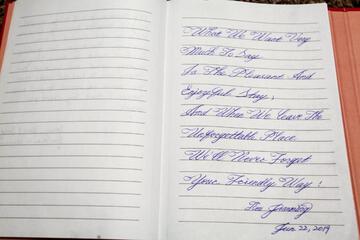 What We Want Very
Much To Say
Is The Pleasant And
Enjoyful Stay,
And When We leave The
Unforgettable Place
We'll Never Forget
Your Friendly Way!
Jun 22, 2019